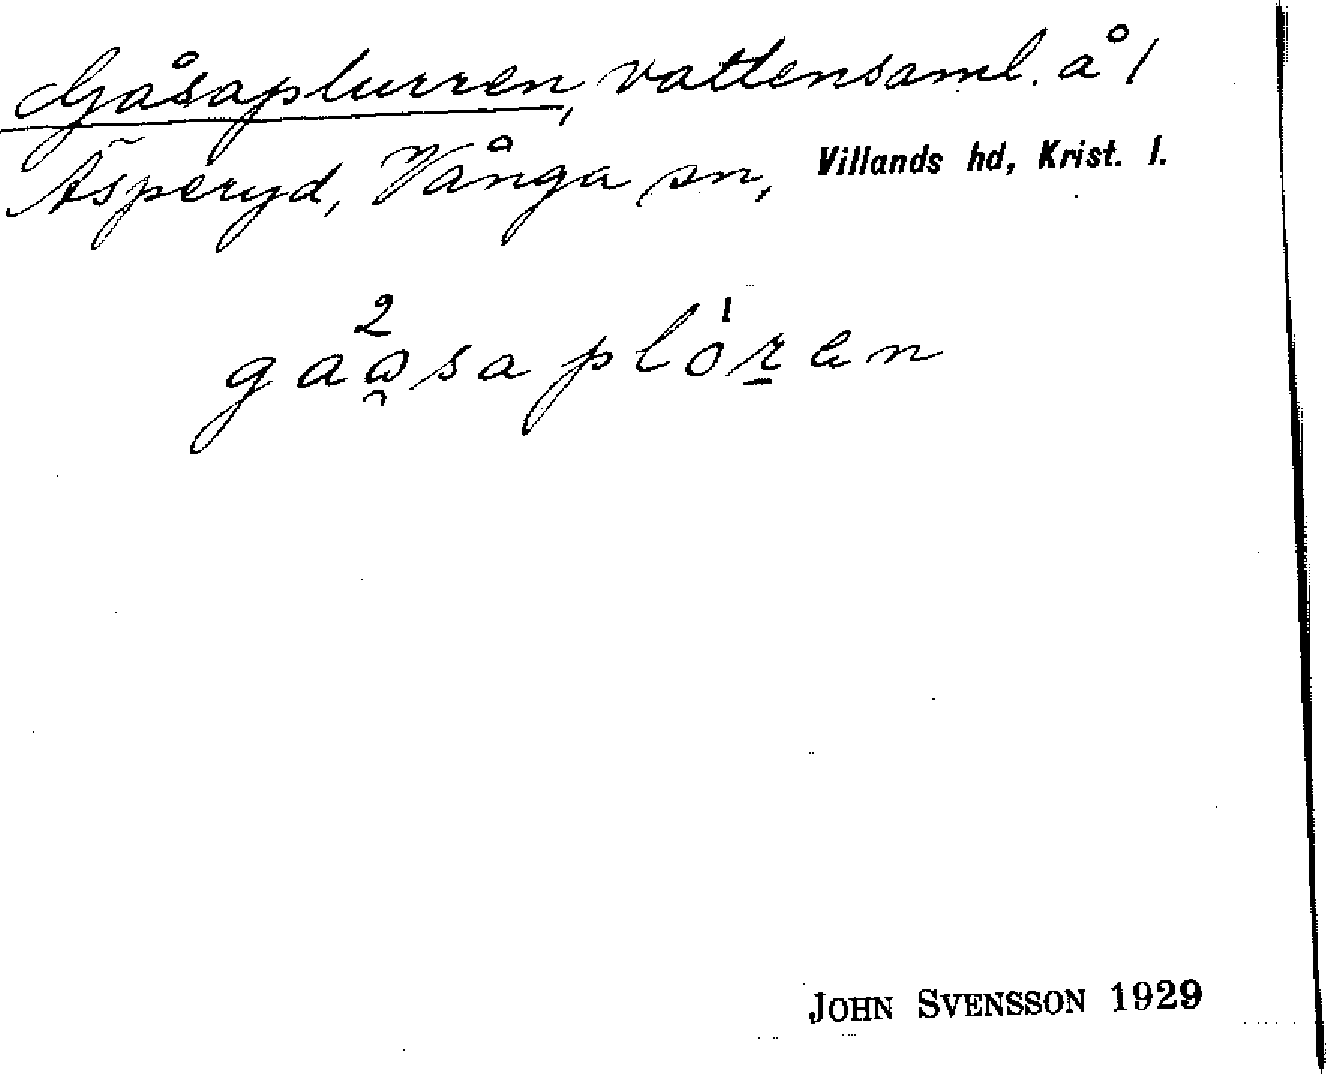 Gåsaplurren, vattensaml. å 1
Äsperyd, Vånga sn, Villands hd, Krist. l.
gaåsaplȯren
JOHN SVENSSON 1929